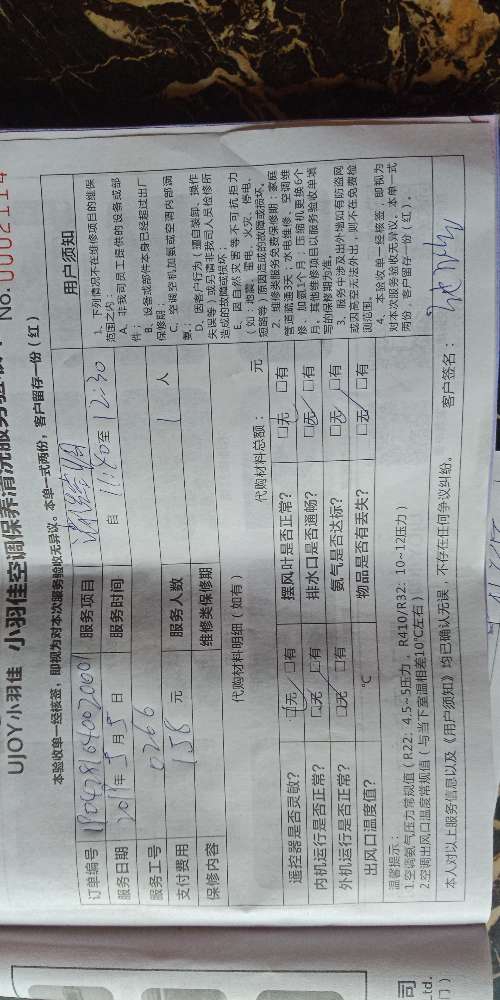 UJOY小羽佳 小羽佳空调保养清洗服务验收单 No.0002114
本验收单一经核签，即视为对本次服务验收无异议。本单一式两份，客户留存一份（红）
订单编号
服务项目 清洗空调
服务日期 2019年5月5日
服务时间 自 11:40至 12:30
服务工号 0266
支付费用 158 元
服务人数 1 人
保修内容
维修类保修期
代购材料明细（如有）
代购材料总额： 元
遥控器是否灵敏？ □无 □有
摆风叶是否正常？ □无 □有
内机运行是否正常？ □无 □有
排水口是否通畅？ □无 □有
外机运行是否正常？ □无 □有
氨气是否达标？ □无 □有
出风口温度值？ ℃
物品是否有丢失？ □无 □有
用户须知
1、下列情况不在维修项目的维保
范围之内：
A、非我司员工提供的设备或部
件；
B、设备或部件本身已经超过出厂
保修期；
C、空调空机加氨或空调内部漏
氨；
D、因客户行为（擅自装卸、操作
失误等）或另请非我司人员检修所
造成的故障或损坏。
E、因自然灾害等不可抗拒力
（如：地震、雷电、火灾、停电、
短路等）原因造成的故障或损坏。
2、维修类服务免费保修期：家庭
管道疏通3天；水电维修、空调维
修、加氨1个月；压缩机更换6个
月；其他维修项目以服务验收单填
写的保修期为准。
3、服务中涉及出外墙如有防盗网
或因高空无法外出，则不在免费检
测范围。
4、本验收单一经核签，即视为
对本次服务验收无异议。本单一式
两份，客户留存一份（红）。
温馨提示：
1.空调氨气压力常规值（R22：4.5~5压力，R410/R32：10~12压力）
2.空调出风口温度常规值（与当下室温相差10℃左右）
本人对以上服务信息以及《用户须知》均已确认无误，不存在任何争议纠纷。 客户签名：
司
td.